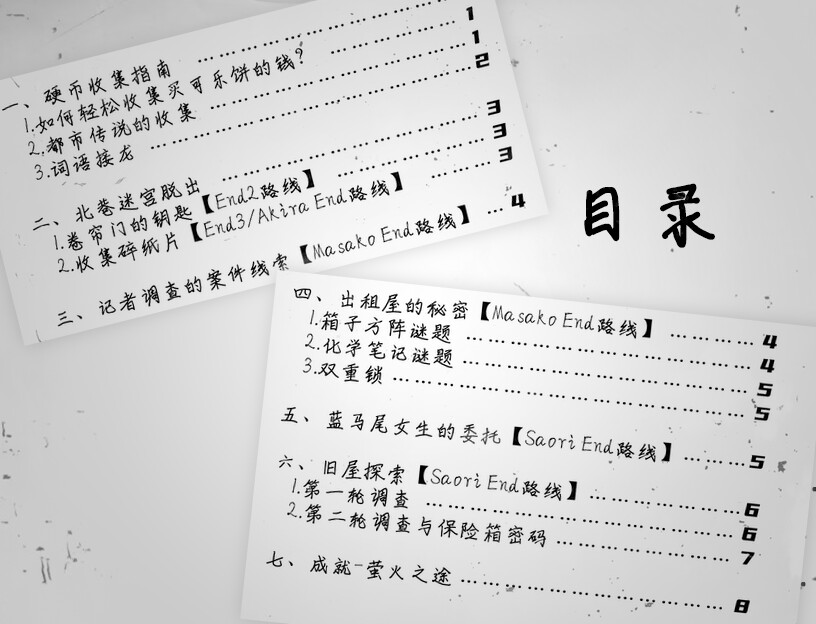 目录
一、硬币收集指南 …………………………
1.如何轻松收集买可乐饼的钱? ………… 1
2.都市传说的收集 ………………………… 1
3.词语接龙 ………………………………… 2
二、北巷迷宫脱出 ………………………… 3
1.卷帘门的钥匙【End2路线】 ………… 3
2.收集碎纸片【End3/Akira End路线】 …… 3
三、记者调查的案件线索【Masako End路线】 … 4
四、出租屋的秘密【Masako End路线】 ……… 4
1.箱子方阵谜题 …………………………… 4
2.化学笔记谜题 …………………………… 5
3.双重锁 …………………………………… 5
五、蓝马尾女生的委托【Saori End路线】 ……… 5
六、旧屋探索【Saori End路线】 …………… 6
1.第一轮调查 ……………………………… 6
2.第二轮调查与保险箱密码 ……………… 7
七、成就-萤火之途 ………………………… 8